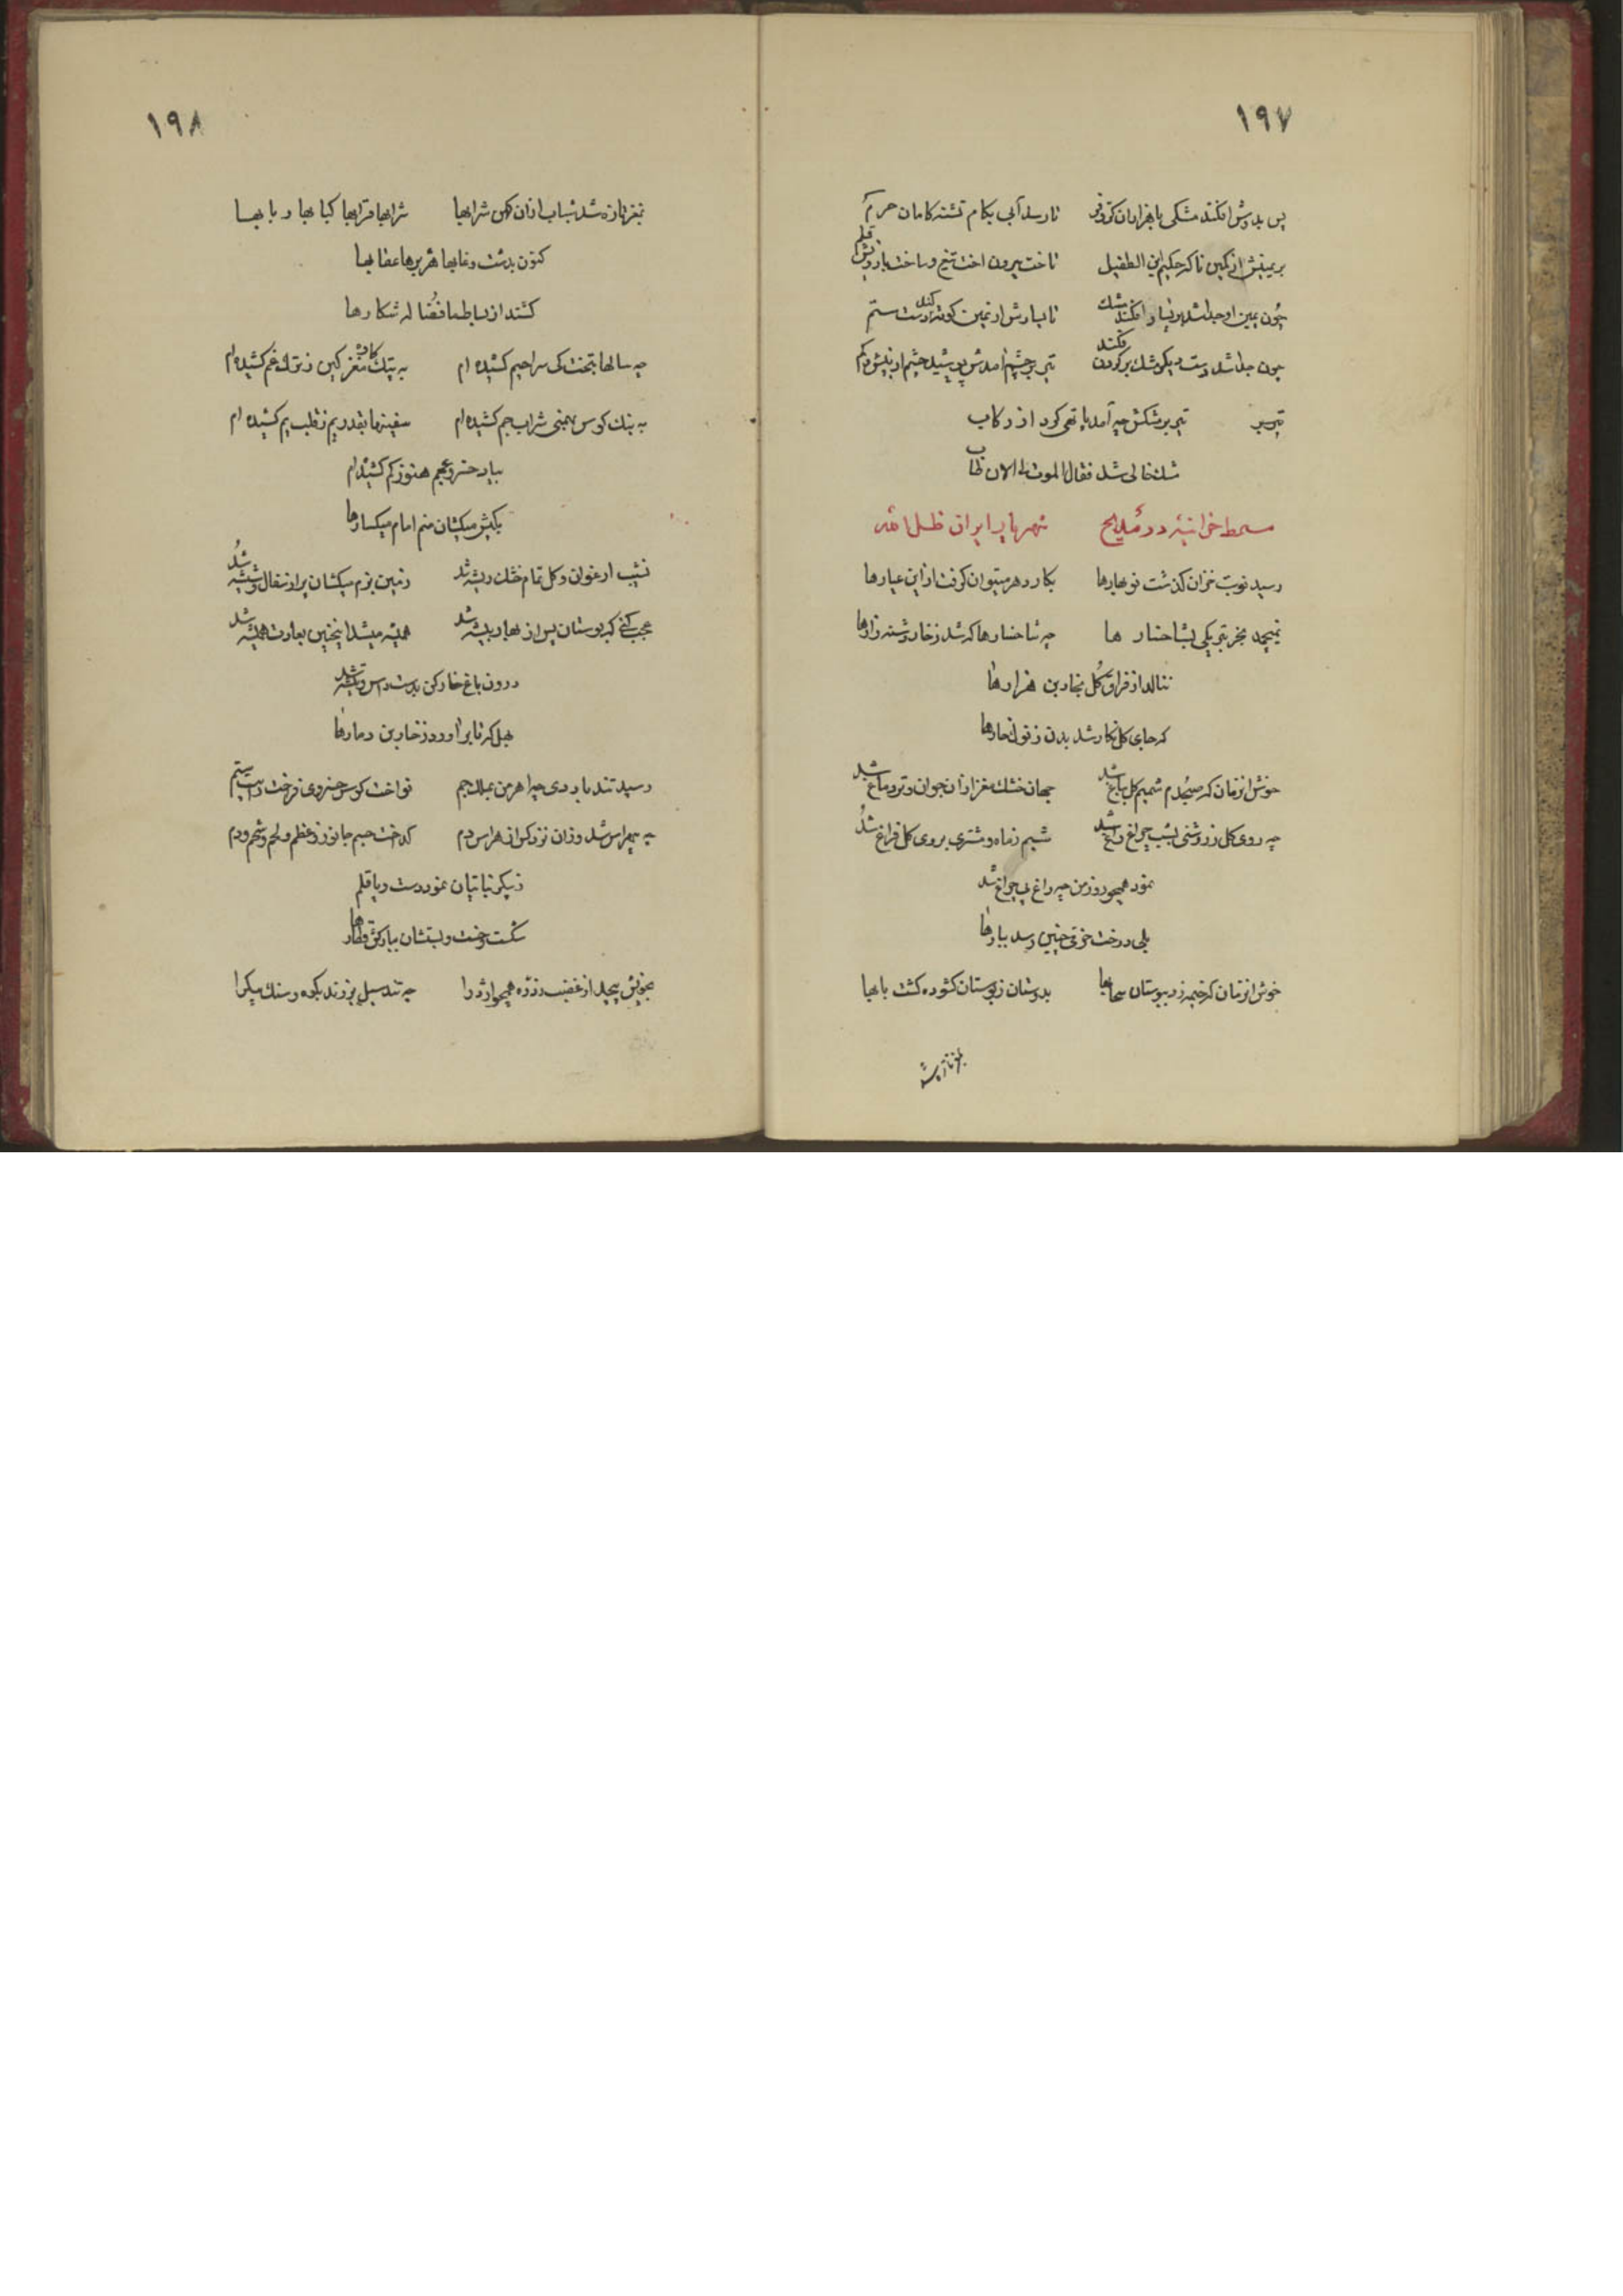 ۱۹۷
پس بدوش افکند مشکی با هزاران کروفر تا رساند آبی بکام تشنه کامان حرم
بر یمینش از کمین ناگه حکیم ابن الطفیل تاخت بیرون اخت تیغ و ساخت بازویش قلم
چون یمین او جدا شد بر یسار افکند مشک تا یسارش از یمین کوته کند دست ستم
چون جدا شد دست دیگر مشک بر گردن فکند تیر بر چشم آمدش پوشید چشم از بیش و کم
تیر بر مشکش چه آمد پا تهی کرد از رکاب
مشک خالی شد فقال الموت لی الان طاب
مسمط خزانیه در مدایح شهریار ایران ظل الله
رسید نوبت خزان گذشت نو بهارها بکار دهر میتوان گرفت ازین عیارها
نمیچمد بجز تبر یکی بشاخسار ها چه شاخسارها که شد ز خار دشنه زارها
ننالد از فراق گل بخاربن هزارها
که جای گل نگار شد بدن ز نوک خارها
خوش انزمان که صبحدم شمیم گل بباغ شد جهان خشک مغز ازان جوان و تر دماغ شد
چه روی گل ز روشنی بشب چراغ راغ شد شبم ز ماه و مشتری بروی گل فراغ شد
نمود همچو روز من چه راغ بی چراغ شد
بلی درخت خرمی چنین رسد ببارها
خوش انزمان که خیمه زد ببوستان سحابها بدوستان ز بوستان گشوده گشت بابها
بمغز تازه شد
۱۹۸
بمغز تازه شد شباب ازان کهن شرابها شرابها قرابها کبابها ربابها
کنون بدشت و غابها هژبرها عقابها
کشند از بساط ما فضاله شکارها
چه سالها بتخت کی سراحیم کشیده ام به پتک گاو مغز کین ز ترک غم کشیده ام
به بنک کوس بهمنی شراب جم کشیده ام سفینها بقدر یم ز قلب یم کشیده ام
بیاد خسرو عجم هنوز کم کشیده ام
بکیش میکشان منم امام میکسارها
نشیب ارغوان و گل تمام خشک ریشه شد زمین بزم میکشان پر از سفال و شیشه شد
عجب کنی که بوستان پس از بهار بیشه شد همیشه میشد اینچنین بعادت همیشه شد
درون باغ خارکن بدست داس و تیشه شد
بهل که تا براورد ز خاربن دمارها
رسید تند باد دی چه اهرمن بملک جم نواخت کوس خسروی فراخت دست ستم
چه مهر اسد وزان نزد کس از هراس دم گداخت جسم جانور ز عظم و لحم و شحم و دم
ز پیکر نباتیان نمود دست و پا قلم
شکست رخت و بستشان ببارکش قطارها
بخویش پیچد از غضب رزده همچو اژدها چه تند سیل بر زند بکوه و سنگ پیکرا